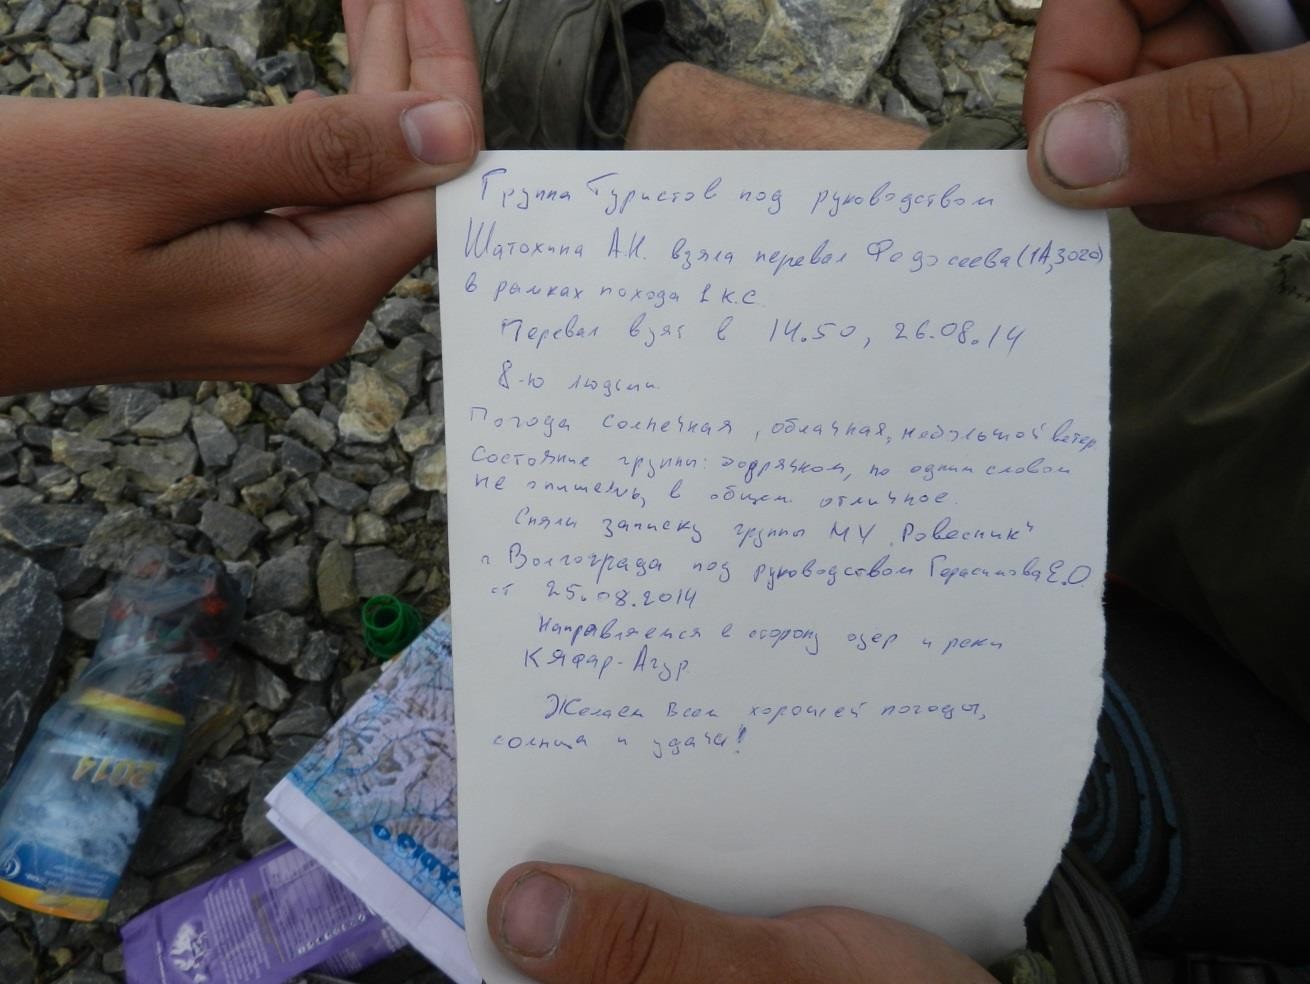 Группа Туристов под руководством
Шатохина А.Н. взяла перевал Федосеева (1А, 3020)
в рамках похода 1 к.с.
Перевал взят в 14.50, 26.08.14
8-ю людьми.
Погода солнечная, облачная, небольшой ветер.
Состояние группы: по одним словом
не опишешь, в общем отличное.
Сняли записку группы МУ "Ровесник"
г. Волгограда под руководством Герасимова Е.О.
от 25.08.2014
Направляемся в сторону озёр и реки
Кяфар-Агур.
Желаем всем хорошей погоды,
солнца и удачи!
2014